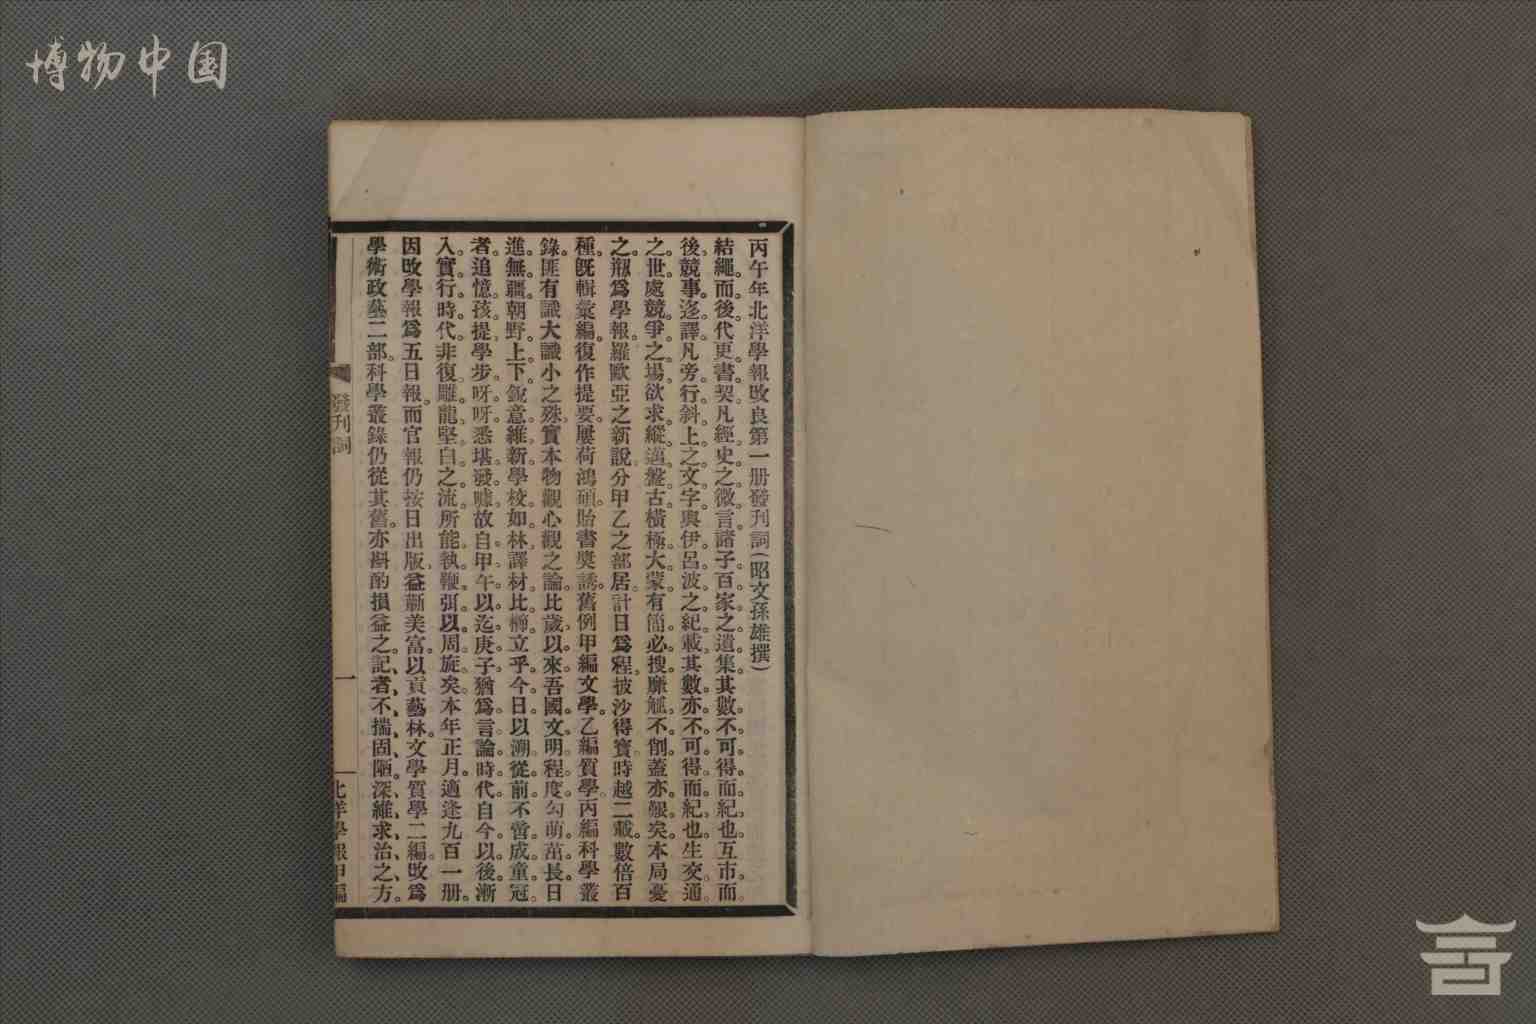 博物中国
丙午年北洋學報改良第一册發刊詞(昭文孫雄撰)
結繩而後代更書契凡經史之微言諸子百家之遺集其數不可得而紀也互市而
後競事迻譯凡旁行斜上之文字與伊呂波之紀載其數亦不可得而紀也生交通
之世處競爭之場欲求縱邁盤古橫極大蒙有簡必搜靡觚不削蓋亦艱矣本局憂
之爲學報羅歐亞之新說分甲乙之部居計日爲程披沙得寶時越二載數倍百
種既輯彙編復作提要屢荷鴻碩貽書奬誘舊例甲編文學乙編質學丙編科學叢
錄匪有識大識小之殊實本物觀心觀之論比歲以來吾國文明程度勾萌茁長日
進無疆朝野上下銳意維新學校如林譯材比櫛立乎今日以溯從前不啻成童冠
者追憶孩提學步呀呀悉堪發噱故自甲午以迄庚子猶爲言論時代自今以後漸
入實行時代非復雕龍堅白之流所能執鞭弭以周旋矣本年正月適逢九百一册
因改學報爲五日報而官報仍按日出版益蘄美富以貢藝林文學質學二編改爲
學術政藝二部科學叢錄仍從其舊亦斟酌損益之記者不揣固陋深維求治之方
發刊詞
一
北洋學報甲編